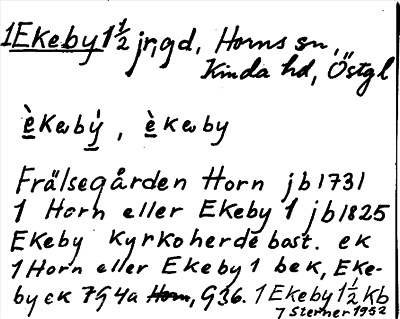 1 Ekeby 1 1/2 jr, gd, Horns sn,
Kinda hd, Östgl
è̲kəbý̲, è̲kəby
Frälsegården Horn jb 1731
1 Horn eller Ekeby 1 jb 1825
Ekeby Kyrkoherdebost. ek
1 Horn eller Ekeby 1 bek, Eke-
by ek 7G4a Horn, G36. 1 Ekeby 1 1/2 kb
7 Sterner 1952